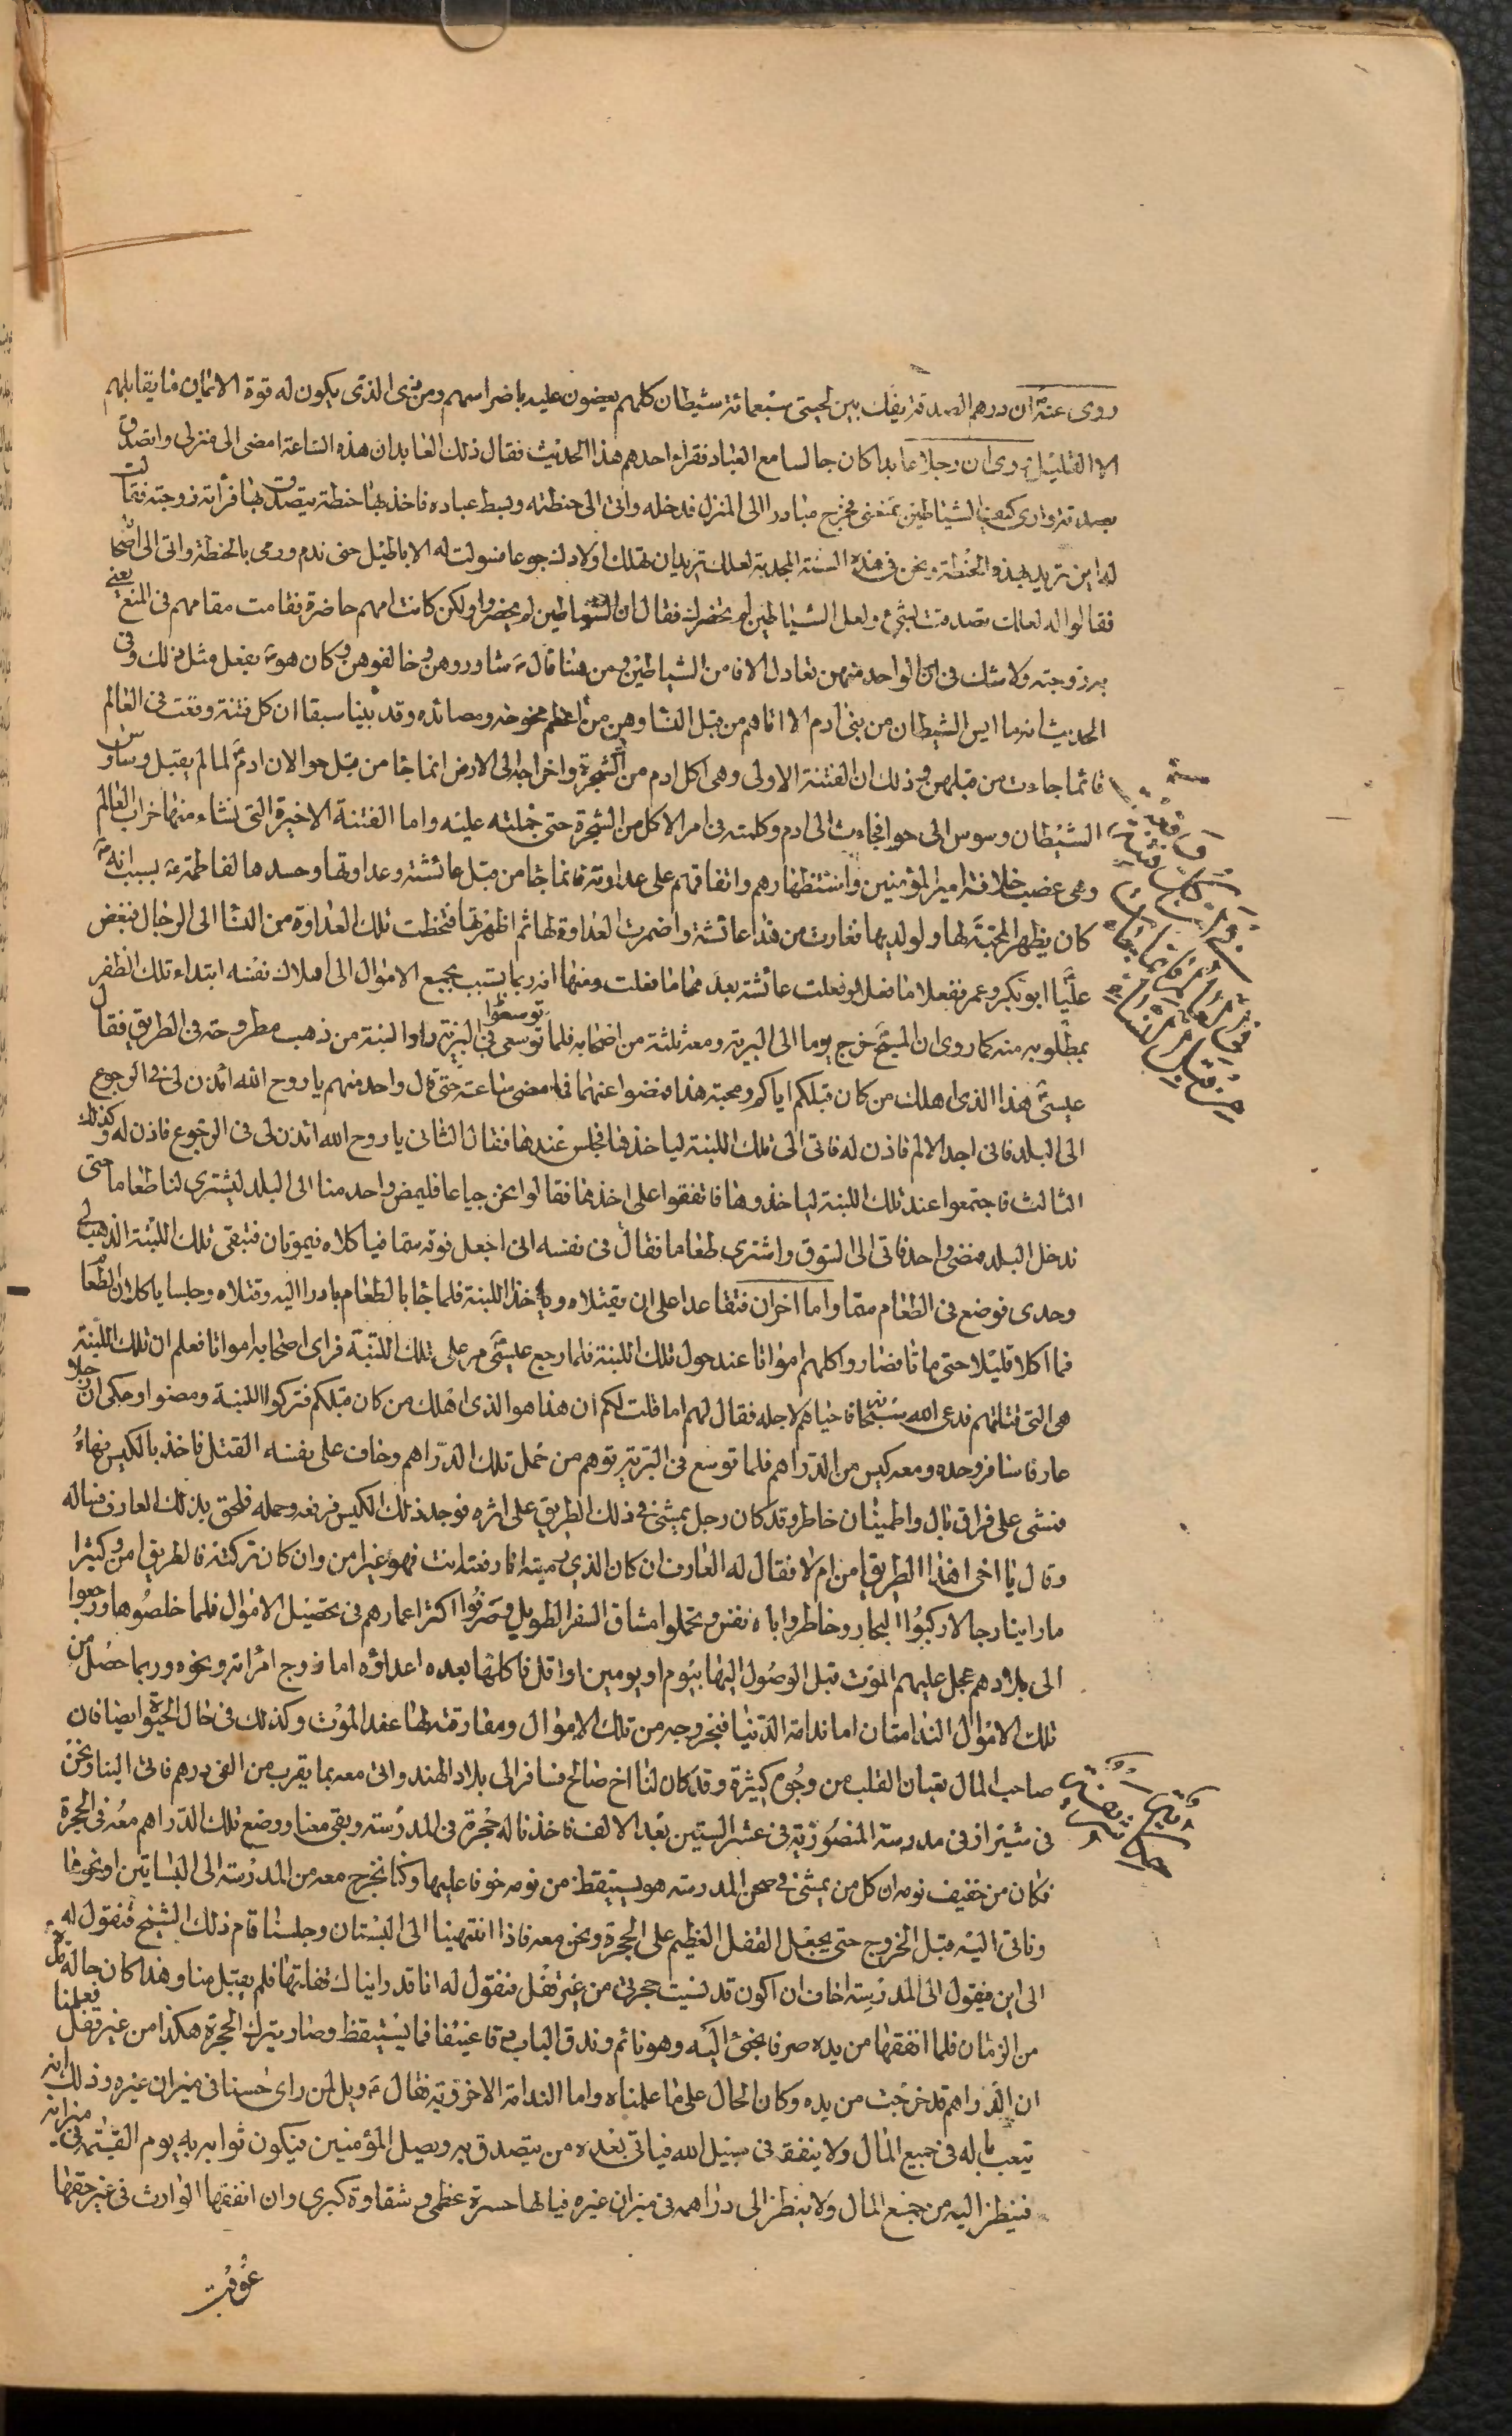 روى عنه ان درهم الصدقة يفك بين لحيتى سبعمائة شيطان كلهم يعضون عليه باضراسهم ومن ذى الذى يكون له قوة الايمان فايقابلهم
الا القليل روى ان رجلا عابدا كان جالسا مع العباد فقراء احدهم هذا الحديث فقال ذلك العابد ان هذه الساعة امضى الى منزلى واتصدق
بصدقة وارى كيف الشياطين تمنعنى فخرج مبادرا الى المنزل فدخله واتى الى حنطته وبسط عباده فاخذ بها حنطة ليتصدق بها فرأته زوجته فقالت
له اين تريد بهذه الحنطة ونحن فى هذه السنة المجدبة لعلك تريد ان تهلك اولادك جوعا فسولت له الاباطيل حتى ندم ورمى بالحنطة واتى الى اصحابه
فقالوا له لعلك تصدقت بشئ ولعل الشياطين لم تحضرك فقال ان الشياطين لم يحضروا ولكن كانت امهم حاضرة فقامت مقامهم فى المنع يعنى
به زوجته ولا شك فى ان الواحد منهن تعادل الافا من الشياطين ومن هنا قال شاوروهن وخالفوهن وكان هو يفعل مثل ذلك وفى
الحديث انه ما ايس الشيطان من بنى ادم الا اتاهم من قبل النساء وهن من اعظم فخوخه ومصائده وقد بينا سبقا ان كل فتنة وقعت فى العالم
فانما جاءت من قبلهن وذلك ان الفتنة الاولى وهى اكل ادم من الشجرة واخراجه الى الارض انما جا من قبل حوا لان ادم لما لم يقبل وساوس
الشيطان وسوس الى حوا فجاءت الى ادم وكلمته فى امر الاكل من الشجرة حتى حملته عليه واما الفتنة الاخيرة التى نشاء منها خراب العالم
وهى غصب خلافة امير المؤمنين واستظهارهم واتفاقهم على عداوته فانما جا من قبل عائشة وعداوتها وحسدها لفاطمة بسبب انه
كان يظهر المحبة لها ولولديها فغارت من هذا عائشة واضمرت العداوة لها ثم اظهرتها فتخطت تلك العداوة من النسا الى الرجال فبغض
عليا ابو بكر وعمر ففعلا ما فعل وفعلت عائشة بعد هما ما فعلت ومنها انه ربما يسبب جميع الاموال الى اهلاك نفسه ابتداء تلك الظفر
بمطلوبه منه كما روى ان المسيح خرج يوما الى البرية ومعه ثلثة من اصحابه فلما توسعوا فى البرية راوا لبنة من ذهب مطروحة فى الطريق فقال
عيسى هذا الذى اهلك من كان قبلكم اياكم ومحبة هذا فمضوا عنها فما مضى ساعة حتى قال واحد منهم يا روح الله ائذن لى فى الرجوع
الى البلد فانى اجد الالم فاذن له فاتى الى تلك اللبنة لياخذها فجلس عندها فقال الثانى يا روح الله ائذن لى فى الرجوع فاذن له وكذلك
الثالث فاجتمعوا عند تلك اللبنة لياخذوها فاتفقوا على اخذها فقالوا نحن جياعا فليمض واحد منا الى البلد ليشترى لنا طعاما حتى
ندخل البلد فمضى واحد فاتى الى السوق واشترى طعاما فقال فى نفسه انى اجعل فوته سما فياكلاه فيموتان فتبقى تلك اللبنة الذهب لى
وحدى فوضع فى الطعام سما واما اخران فتقاعدا على ان يقتلاه وياخذا اللبنة فلما جا بالطعام بادرا اليه وقتلاه وجلسا ياكلان الطعام
فما اكلا قليلا حتى ماتا فصاروا كلهم امواتا عند حول تلك اللبنة فلما رجع عيسى مر على تلك اللبنة فراى اصحابه امواتا فعلم ان تلك اللبنة
هى التى قتلتهم فدعى الله سبحانه فاحياهم لاجله فقال لهم اما قلت لكم ان هذا هو الذى اهلك من كان قبلكم فتركوا اللبنة ومضوا وحكى ان رجلا
عارفا سافر وحده ومعه كيس من الدراهم فلما توسع فى البرية توهم من حمل تلك الدراهم وخاف على نفسه القتل فاخذ بالكيس فرماه
فمشى على فراق بال واطمينان خاطر وقد كان رجل يمشى فى ذلك الطريق على اثره فوجد ذلك الكيس فرفعه وحمله فلحق بذلك العارف فساله
وقال يا اخى هذا الطريق امن ام لا فقال له العارف ان كان الذى رميته انا رفعته انت فهو غير امن وان كان تركته فالطريق امن وكثيرا
ما راينا رجالا ركبوا البحار وخاطروا باه نفس وتحملوا مشاق السفر الطويل وصرفوا اكثر اعمارهم فى تحصيل الاموال فلما خلصوها ورجعوا
الى بلادهم عجل عليهم الموت قبل الوصول اليها بيوم او يومين او اقل فاكلتها بعده اعداؤه اما زوج امراته ونحوه وربما حصل من
تلك الاموال الندامتان اما ندامة الدنيا فبخروجه من تلك الاموال ومفارقته لها عند الموت وكذلك فى حال الحيوة ايضا فان
صاحب المال تعبان القلب من وجوه كثيرة وقد كان لنا اخ صالح فسافر الى بلاد الهند واتى معه بما يقرب من الفى درهم فاتى الينا ونحن
فى شيراز فى مدرسة المنصورية فى عشر الستين بعد الالف فاخذنا له حجرة فى المدرسة وبقى معنا ووضع تلك الدراهم معه فى الحجرة
فكان من خفيف نومه ان كل من يمشى فى صحن المدرسة هو يستيقظ من نومه خوفا عليها وكنا نخرج معه من المدرسة الى البساتين او نحوها
وناتى اليه قبل الخروج حتى يجعل القفل العظيم على الحجرة ونحن معه فاذا انتهينا الى البستان وجلسنا قام ذلك الشيخ فنقول له
الى اين فيقول الى المدرسة اخاف ان اكون قد نسيت حجرتى من غير قفل فنقول له انا قد رايناك قفلتها فلم يقبل منا وهذا كان حاله مدة
من الزمان فلما انفقها من يده صرنا نجئ اليه وهو نائم وندق الباب دقا عنيفا فما يستيقظ وصار يترك الحجرة هكذا من غير قفل فعلمنا
ان الدراهم قد خرجت من يده وكان الحال على ما علمناه واما الندامة الاخروية فقال ويل لمن راى حسنا فى ميزان غيره وذلك انه
يتعب باله فى جميع المال ولا ينفقه فى سبيل الله فياتى بعده من يتصدق به ويصل المؤمنين فيكون ثوابه يوم القيمة فى ميزانه
فينظر اليه من جمع المال ولا ينظر الى دراهمه فى ميزان غيره فيا لها حسرة عظمى وشقاوة كبرى وان انفقها الوارث فى غير حقها
عوقب